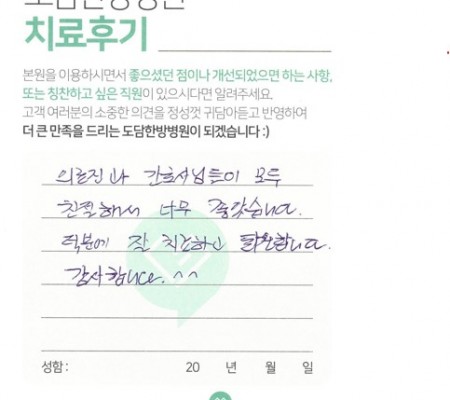 도담한방병원
치료후기
본원을 이용하시면서 좋으셨던 점이나 개선되었으면 하는 사항,
또는 칭찬하고 싶은 직원이 있으시다면 알려주세요.
고객 여러분의 소중한 의견을 정성껏 귀담아듣고 반영하여
더 큰 만족을 드리는 도담한방병원이 되겠습니다 :)
의료진과 간호사님들이 모두
친절해서 너무 좋았습니다.
덕분에 잘 치료하고 퇴원합니다.
감사합니다. ^^
성함 : 20 년 월 일